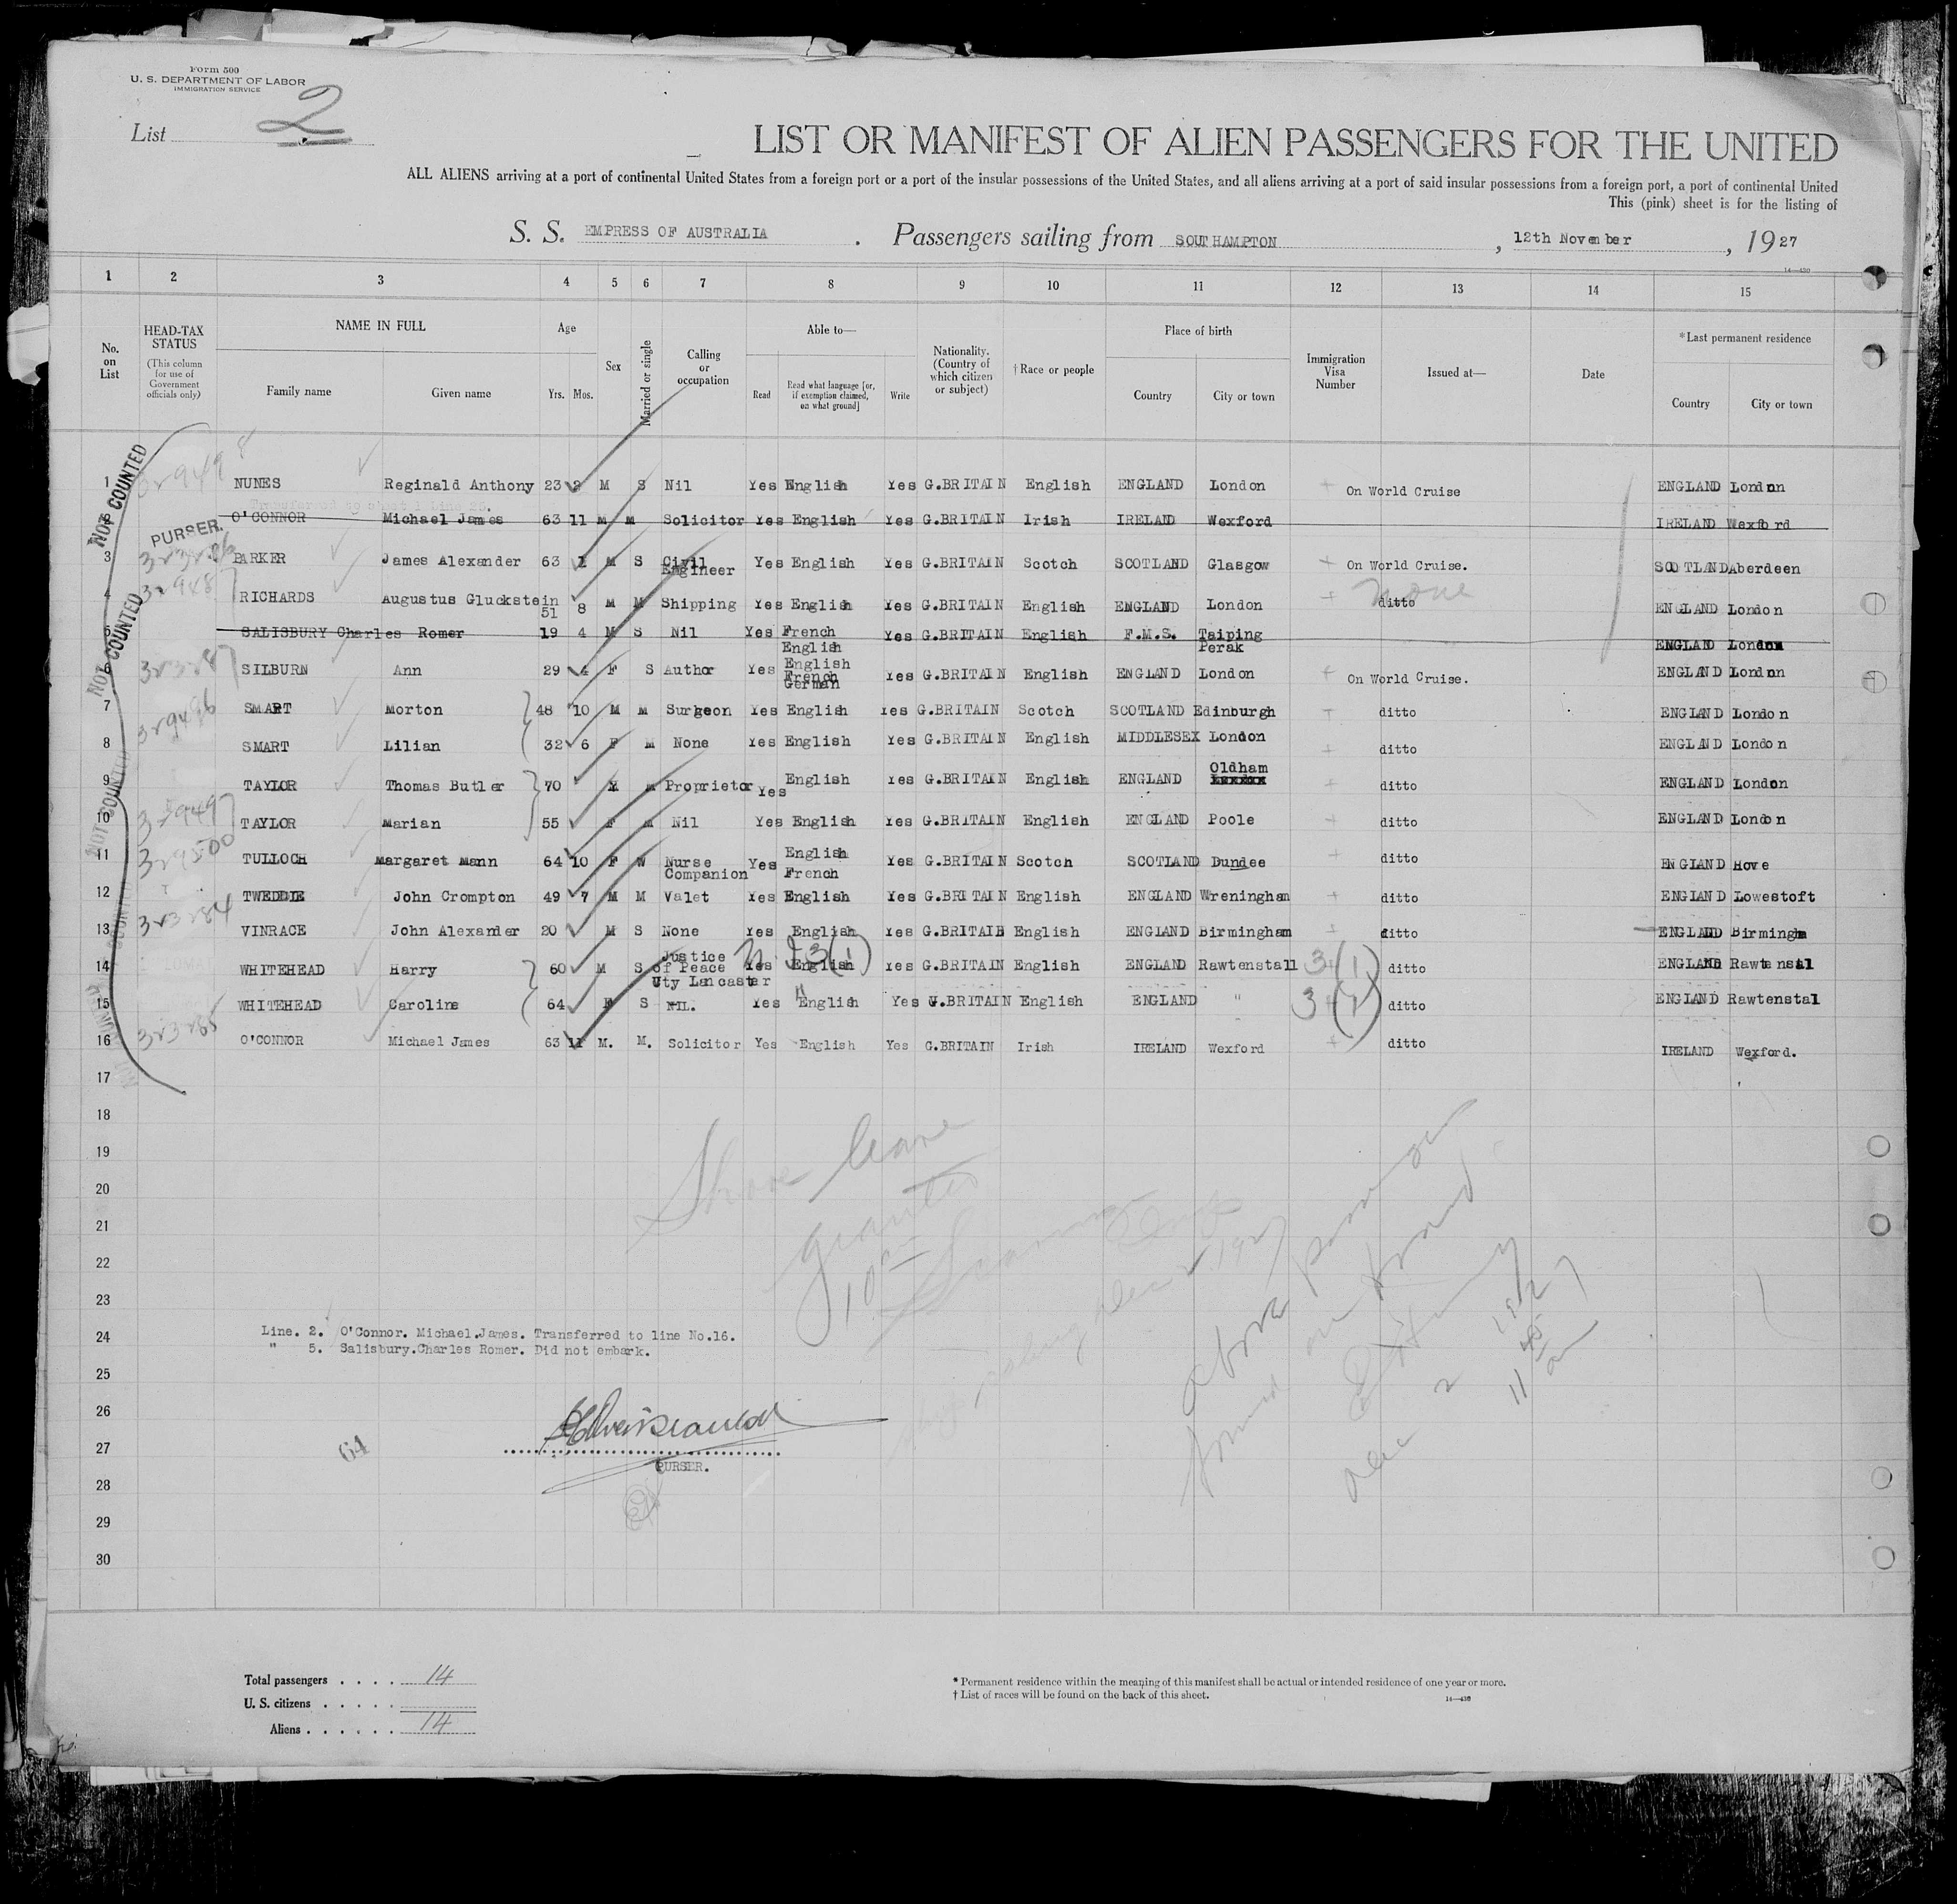 Form 500
U. S. DEPARTMENT OF LABOR
IMMIGRATION SERVICE
List 2
LIST OR MANIFEST OF ALIEN PASSENGERS FOR THE UNITED
ALL ALIENS arriving at a port of continental United States from a foreign port or a port of the insular possessions of the United States, and all aliens arriving at a port of said insular possessions from a foreign port, a port of continental United
This (pink) sheet is for the listing of
S. S. EMPRESS OF AUSTRALIA . Passengers sailing from SOUTHAMPTON , 12th November , 1927
14—430
1 2 3 4 5 6 7 8 9 10 11 12 13 14 15
No. on List
HEAD-TAX STATUS
(This column for use of Government officials only)
NAME IN FULL
Family name Given name
Age
Yrs. Mos.
Sex
Married or single
Calling or occupation
Able to—
Read
Read what language [or, if exemption claimed, on what ground]
Write
Nationality. (Country of which citizen or subject)
†Race or people
Place of birth
Country City or town
Immigration Visa Number
Issued at—
Date
*Last permanent residence
Country City or town
NOT COUNTED
1 NUNES Reginald Anthony 23 2 M S Nil Yes English Yes G.BRITAIN English ENGLAND London On World Cruise ENGLAND London
2 O'CONNOR Michael James 63 11 M M Solicitor Yes English Yes G.BRITAIN Irish IRELAND Wexford IRELAND Wexford
PURSER.
3 PARKER James Alexander 63 1 M S Civil Engineer Yes English Yes G.BRITAIN Scotch SCOTLAND Glasgow On World Cruise. SCOTLAND Aberdeen
4 RICHARDS Augustus Gluckstein 51 8 M M Shipping Yes English Yes G.BRITAIN English ENGLAND London ditto none ENGLAND London
NOT COUNTED
5 SALISBURY Charles Romer 19 4 M S Nil Yes French English Yes G.BRITAIN English F.M.S. Taiping Perak ENGLAND London
6 32387 SILBURN Ann 29 4 F S Author Yes English French German Yes G.BRITAIN English ENGLAND London On World Cruise. ENGLAND London
7 SMART Morton 48 10 M M Surgeon Yes English Yes G.BRITAIN Scotch SCOTLAND Edinburgh ditto ENGLAND London
8 SMART Lilian 32 6 F M None Yes English Yes G.BRITAIN English MIDDLESEX London ditto ENGLAND London
NOT COUNTED
9 TAYLOR Thomas Butler 70 M M Proprietor Yes English Yes G.BRITAIN English ENGLAND Oldham ditto ENGLAND London
10 TAYLOR Marian 55 F M Nil Yes English Yes G.BRITAIN English ENGLAND Poole ditto ENGLAND London
11 TULLOCH Margaret Mann 64 10 F W Nurse Companion Yes English French Yes G.BRITAIN Scotch SCOTLAND Dundee ditto ENGLAND Hove
12 TWEDDIE John Crompton 49 7 M M Valet Yes English Yes G.BRITAIN English ENGLAND Wreningham ditto ENGLAND Lowestoft
13 VINRACE John Alexander 20 M S None Yes English Yes G.BRITAIN English ENGLAND Birmingham ditto ENGLAND Birmingha
14 WHITEHEAD Harry 60 M S Justice of Peace Cty Lancaster Yes English Yes G.BRITAIN English ENGLAND Rawtenstall 3(1) ditto ENGLAND Rawtenstal
15 WHITEHEAD Caroline 64 F S NIL. Yes English Yes G.BRITAIN English ENGLAND " 3(1) ditto ENGLAND Rawtenstal
16 O'CONNOR Michael James 63 11 M. M. Solicitor Yes English Yes G.BRITAIN Irish IRELAND Wexford ditto IRELAND Wexford.
17
18
19
20
21
22
23
24
25
26
27
28
29
30
Shore leave
granted
above person
found on board
Dec 2 1927
11 45 am
Line. 2. O'Connor. Michael.James. Transferred to line No.16.
" 5. Salisbury.Charles Romer. Did not embark.
PURSER.
64
Total passengers . . . . 14
U. S. citizens . . . . .
Aliens . . . . . . 14
* Permanent residence within the meaning of this manifest shall be actual or intended residence of one year or more.
† List of races will be found on the back of this sheet.
14—430